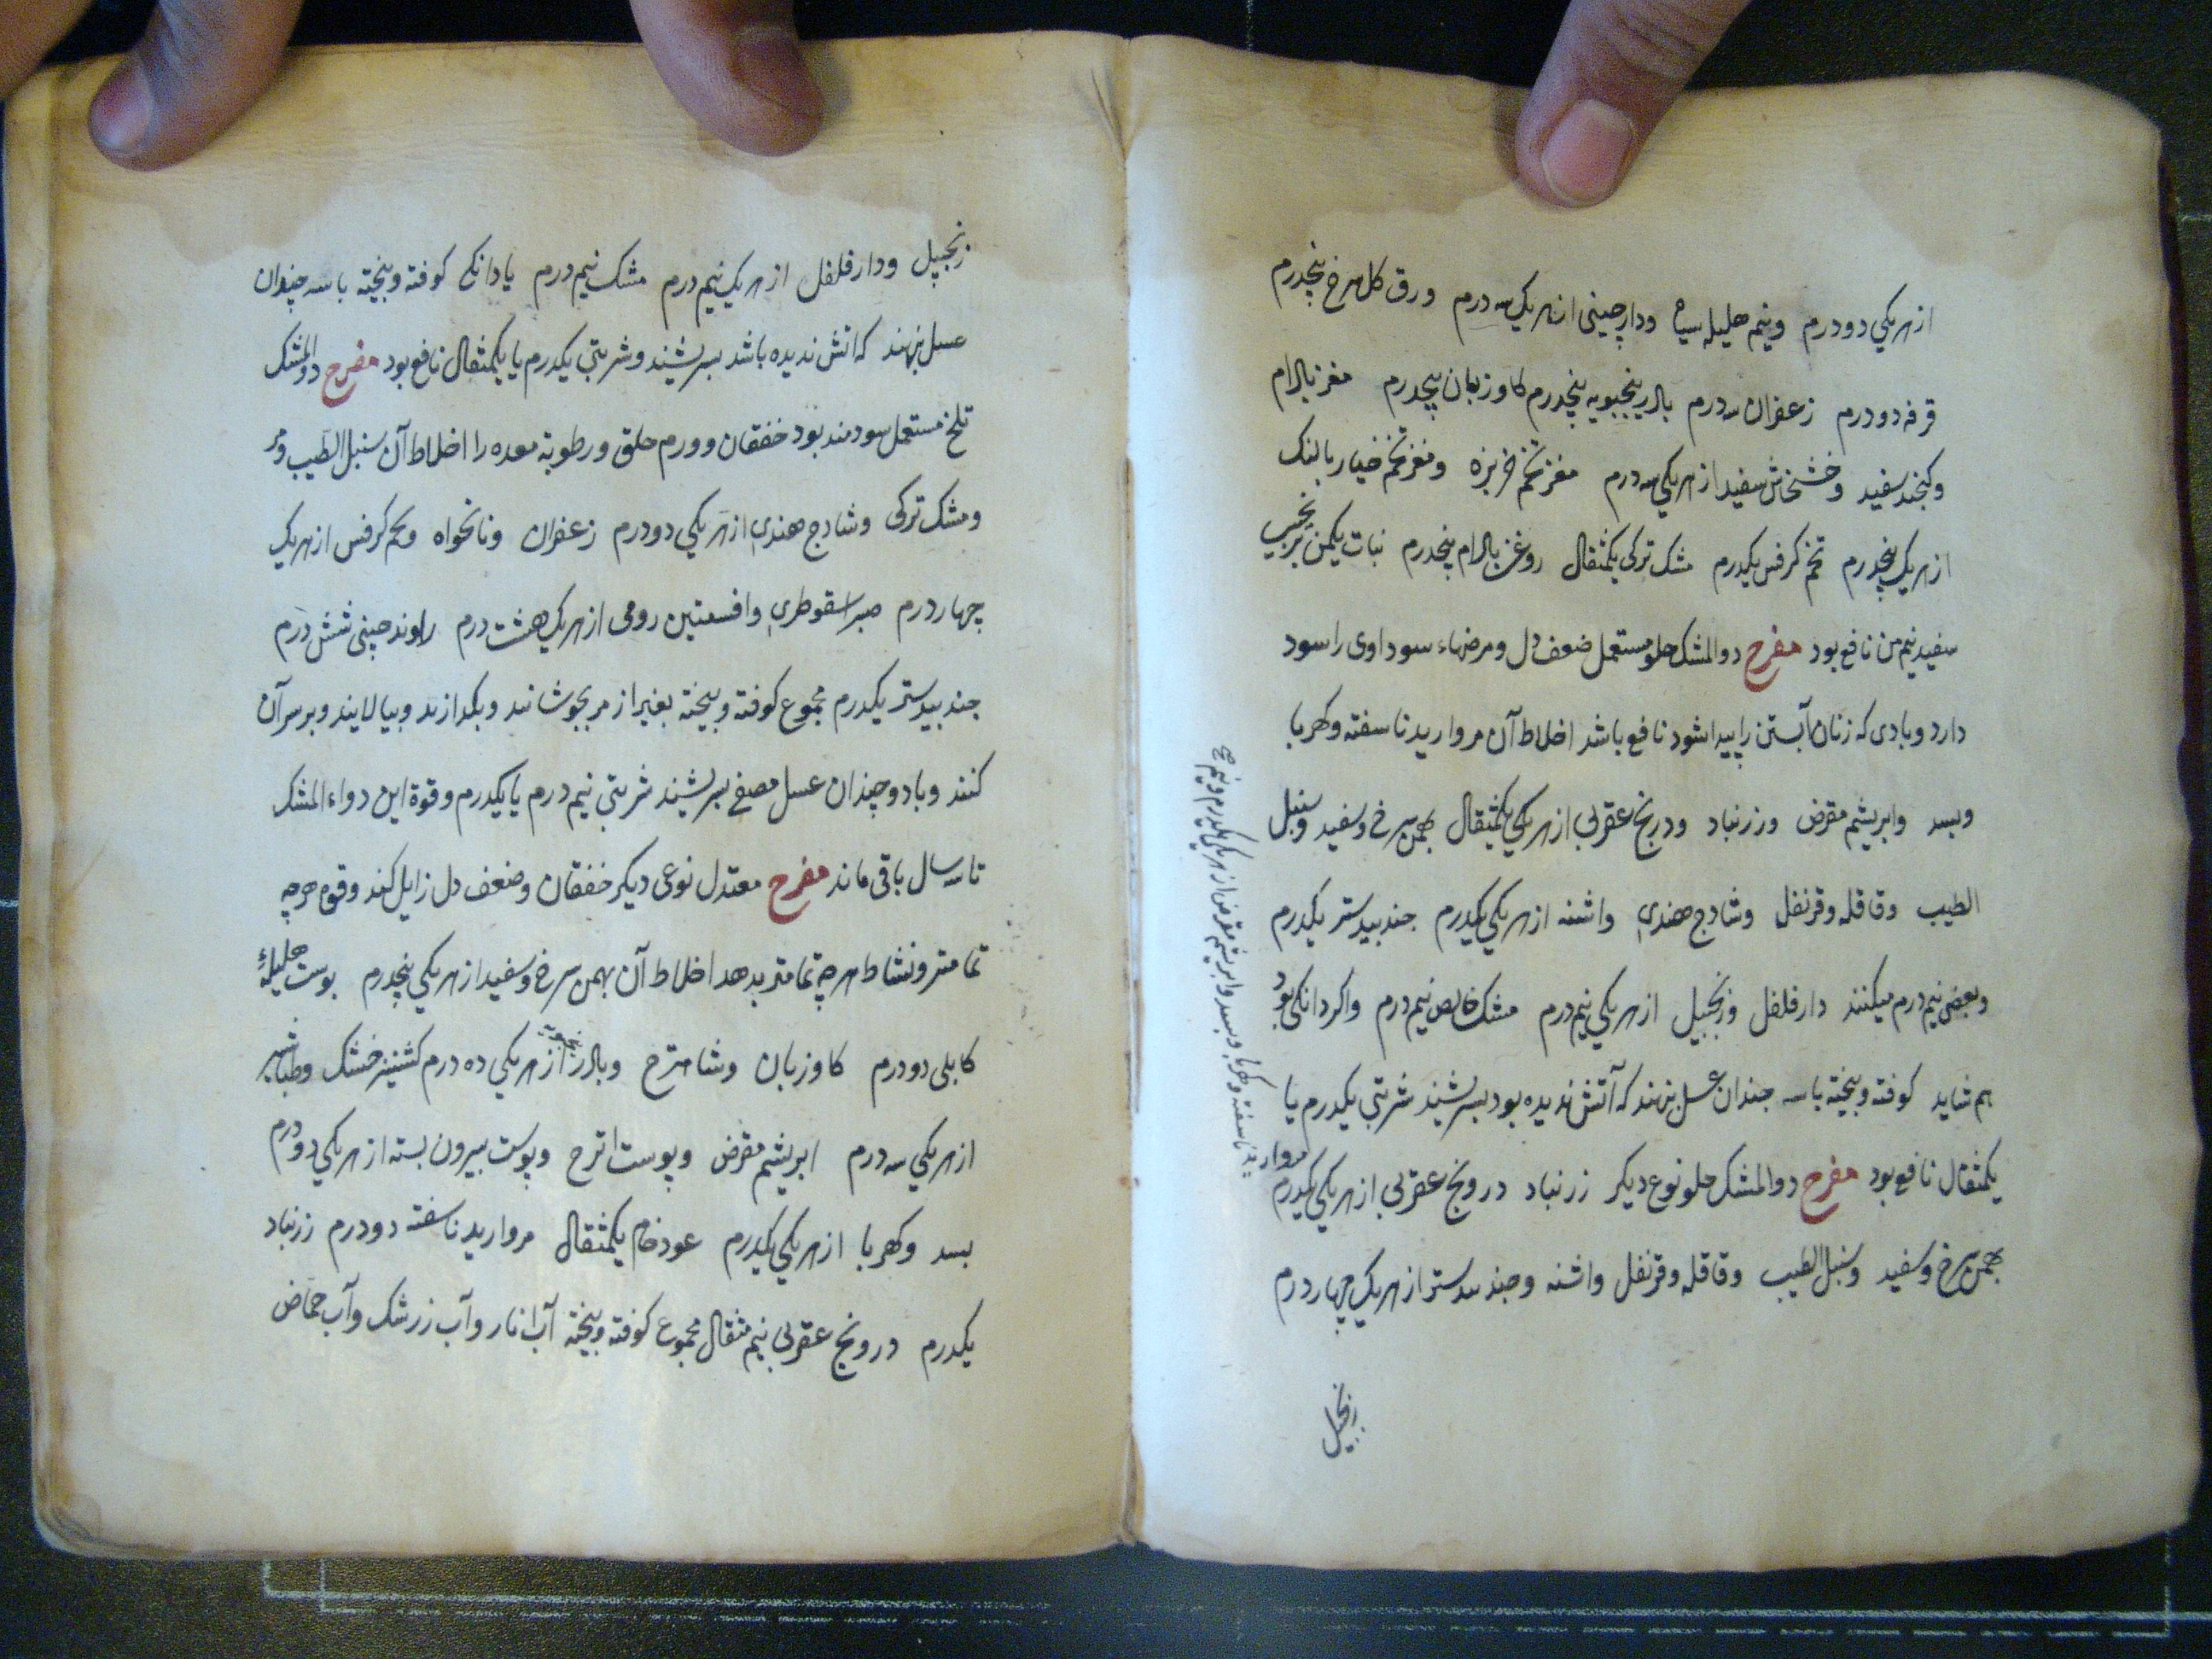 از هر یکی دو درم ونیم هلیله سیاه ودارچینی از هر یک سه درم ورق کل سرخ پنجدرم
قرفه دو درم زعفران سه درم بادرنجبویه پنجدرم کاوزبان پنجدرم مغز بادام
وکنجد سفید وخشخاش سفید از هر یکی سه درم مغز تخم خربزه ومغز تخم خیار بالنک
از هر یک پنجدرم تخم کرفس یکدرم مشک ترکی یکمثقال روغن بادام پنجدرم نبات یکمن
سفید نیم من نافع بود مفرح دوالمشک حلو مستعمل ضعف دل ومرضهاء سوداوی را سود
دارد وبادی که زنان آبستن را پیدا شود نافع باشد اخلاط آن مروارید ناسفته وکهربا
وبسد وابریشم مقرض وزرنباد ودرونج عقربی از هر یکی یکمثقال بهمن سرخ وسفید وسنبل
الطیب وقاقله وقرنفل وشادج هندی واشنه از هر یکی یکدرم جندبیدستر یکدرم
وبعضی نیم درم میکنند دارفلفل وزنجبیل از هر یکی نیم درم مشک خالص نیم درم واکر دانکی بود
هم شاید کوفته وبیخته با سه چندان عسل نهند که آتش ندیده بود بسرشند شربتی یکدرم یا
یکمثقال نافع بود مفرح دوالمشک حلو نوع دیکر زرنباد درونج عقربی از هر یکی یکدرم
مروارید ناسفته وکهربا وبسد وابریشم مقرض از هر یکی یکدرم ونیم
بهمن سرخ وسفید وسنبل الطیب وقاقله وقرنفل واشنه وجندبیدستر از هر یک چهار درم
زنجبیل
زنجبیل ودارفلفل از هر یک نیم درم مشک نیم درم یا دانکی کوفته وبیخته با سه چندان
عسل نهند که آتش ندیده باشد بسرشند وشربتی یکدرم یا یکمثقال نافع بود مفرح دوالمشک
تلخ مستعمل سودمند بود خفقان وورم حلق ورطوبة معده را اخلاط آن سنبل الطیب ومر
ومشک ترکی وشادج هندی از هر یکی دو درم زعفران ونانخواه وتخم کرفس از هر یک
چهار درم صبر اسقوطری وافسنتین رومی از هر یک هشت درم راوند چینی شش درم
جندبیدستر یکدرم مجموع کوفته وبیخته بغیر از مر بجوشانند وبکدازند وبیالایند وبر سر آن
کنند وبا دو چندان عسل مصفی بسرشند شربتی نیم درم یا یکدرم وقوة این دواء المشک
تا سه سال باقی ماند مفرح معتدل نوعی دیکر خفقان وضعف دل زایل کند وقوه هرچه
تمامتر ونشاط هرچه تمامتر بدهد اخلاط آن بهمن سرخ وسفید از هر یکی پنجدرم پوست هلیلهٔ
کابلی دو درم کاوزبان وشاهترج وبادرنجبویه از هر یکی ده درم کشنیز خشک وطباشیر
از هر یکی سه درم ابریشم مقرض وپوست اترج وپوست بیرون پسته از هر یکی دو درم
بسد وکهربا از هر یکی یکدرم عود خام یکمثقال مروارید ناسفته دو درم زرنباد
یکدرم درونج عقربی نیم مثقال مجموع کوفته وبیخته آب انار وآب زرشک وآب حماض